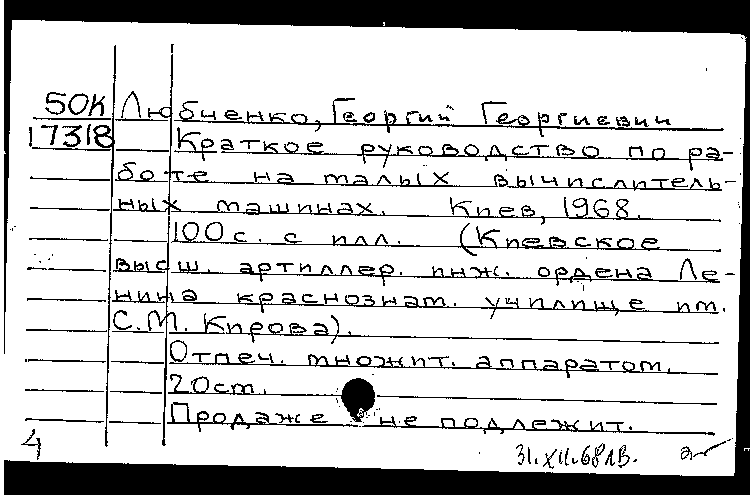 50К Любченко, Георгий Георгиевич
17318 Краткое руководство по ра-
боте на малых вычислитель-
ных машинах. Киев, 1968.
100с. с илл. (Киевское
высш. артиллер. инж. ордена Ле-
нина краснознам. училище им.
С.М. Кирова).
Отпеч. множит. аппаратом.
20см.
Продаже не подлежит.
4 31.XII.68